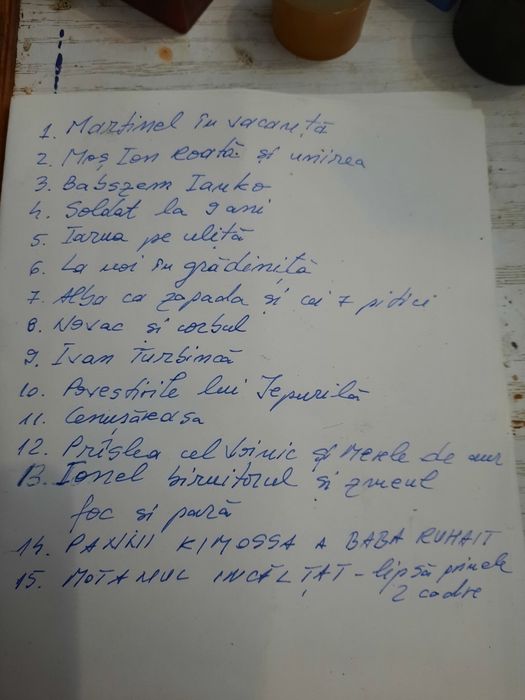 1. Martinel în vacanță
2. Moș Ion Roată și unirea
3. Babszem Ianko
4. Soldat la 9 ani
5. Iarna pe uliță
6. La noi în grădiniță
7. Alba ca zapada și cei 7 pitici
8. Novac și corbul
9. Ivan Turbincă
10. Povestirile lui Iepurilă
11. Cenușăreasa
12. Prîslea cel Voinic și merele de aur
13. Ionel biruitorul și zmeul
foc și pară
14. PANNII KIMOSSA A BABA RUHAIT
15. MOTANUL INCĂLȚAT - lipsă primele
2 cadre